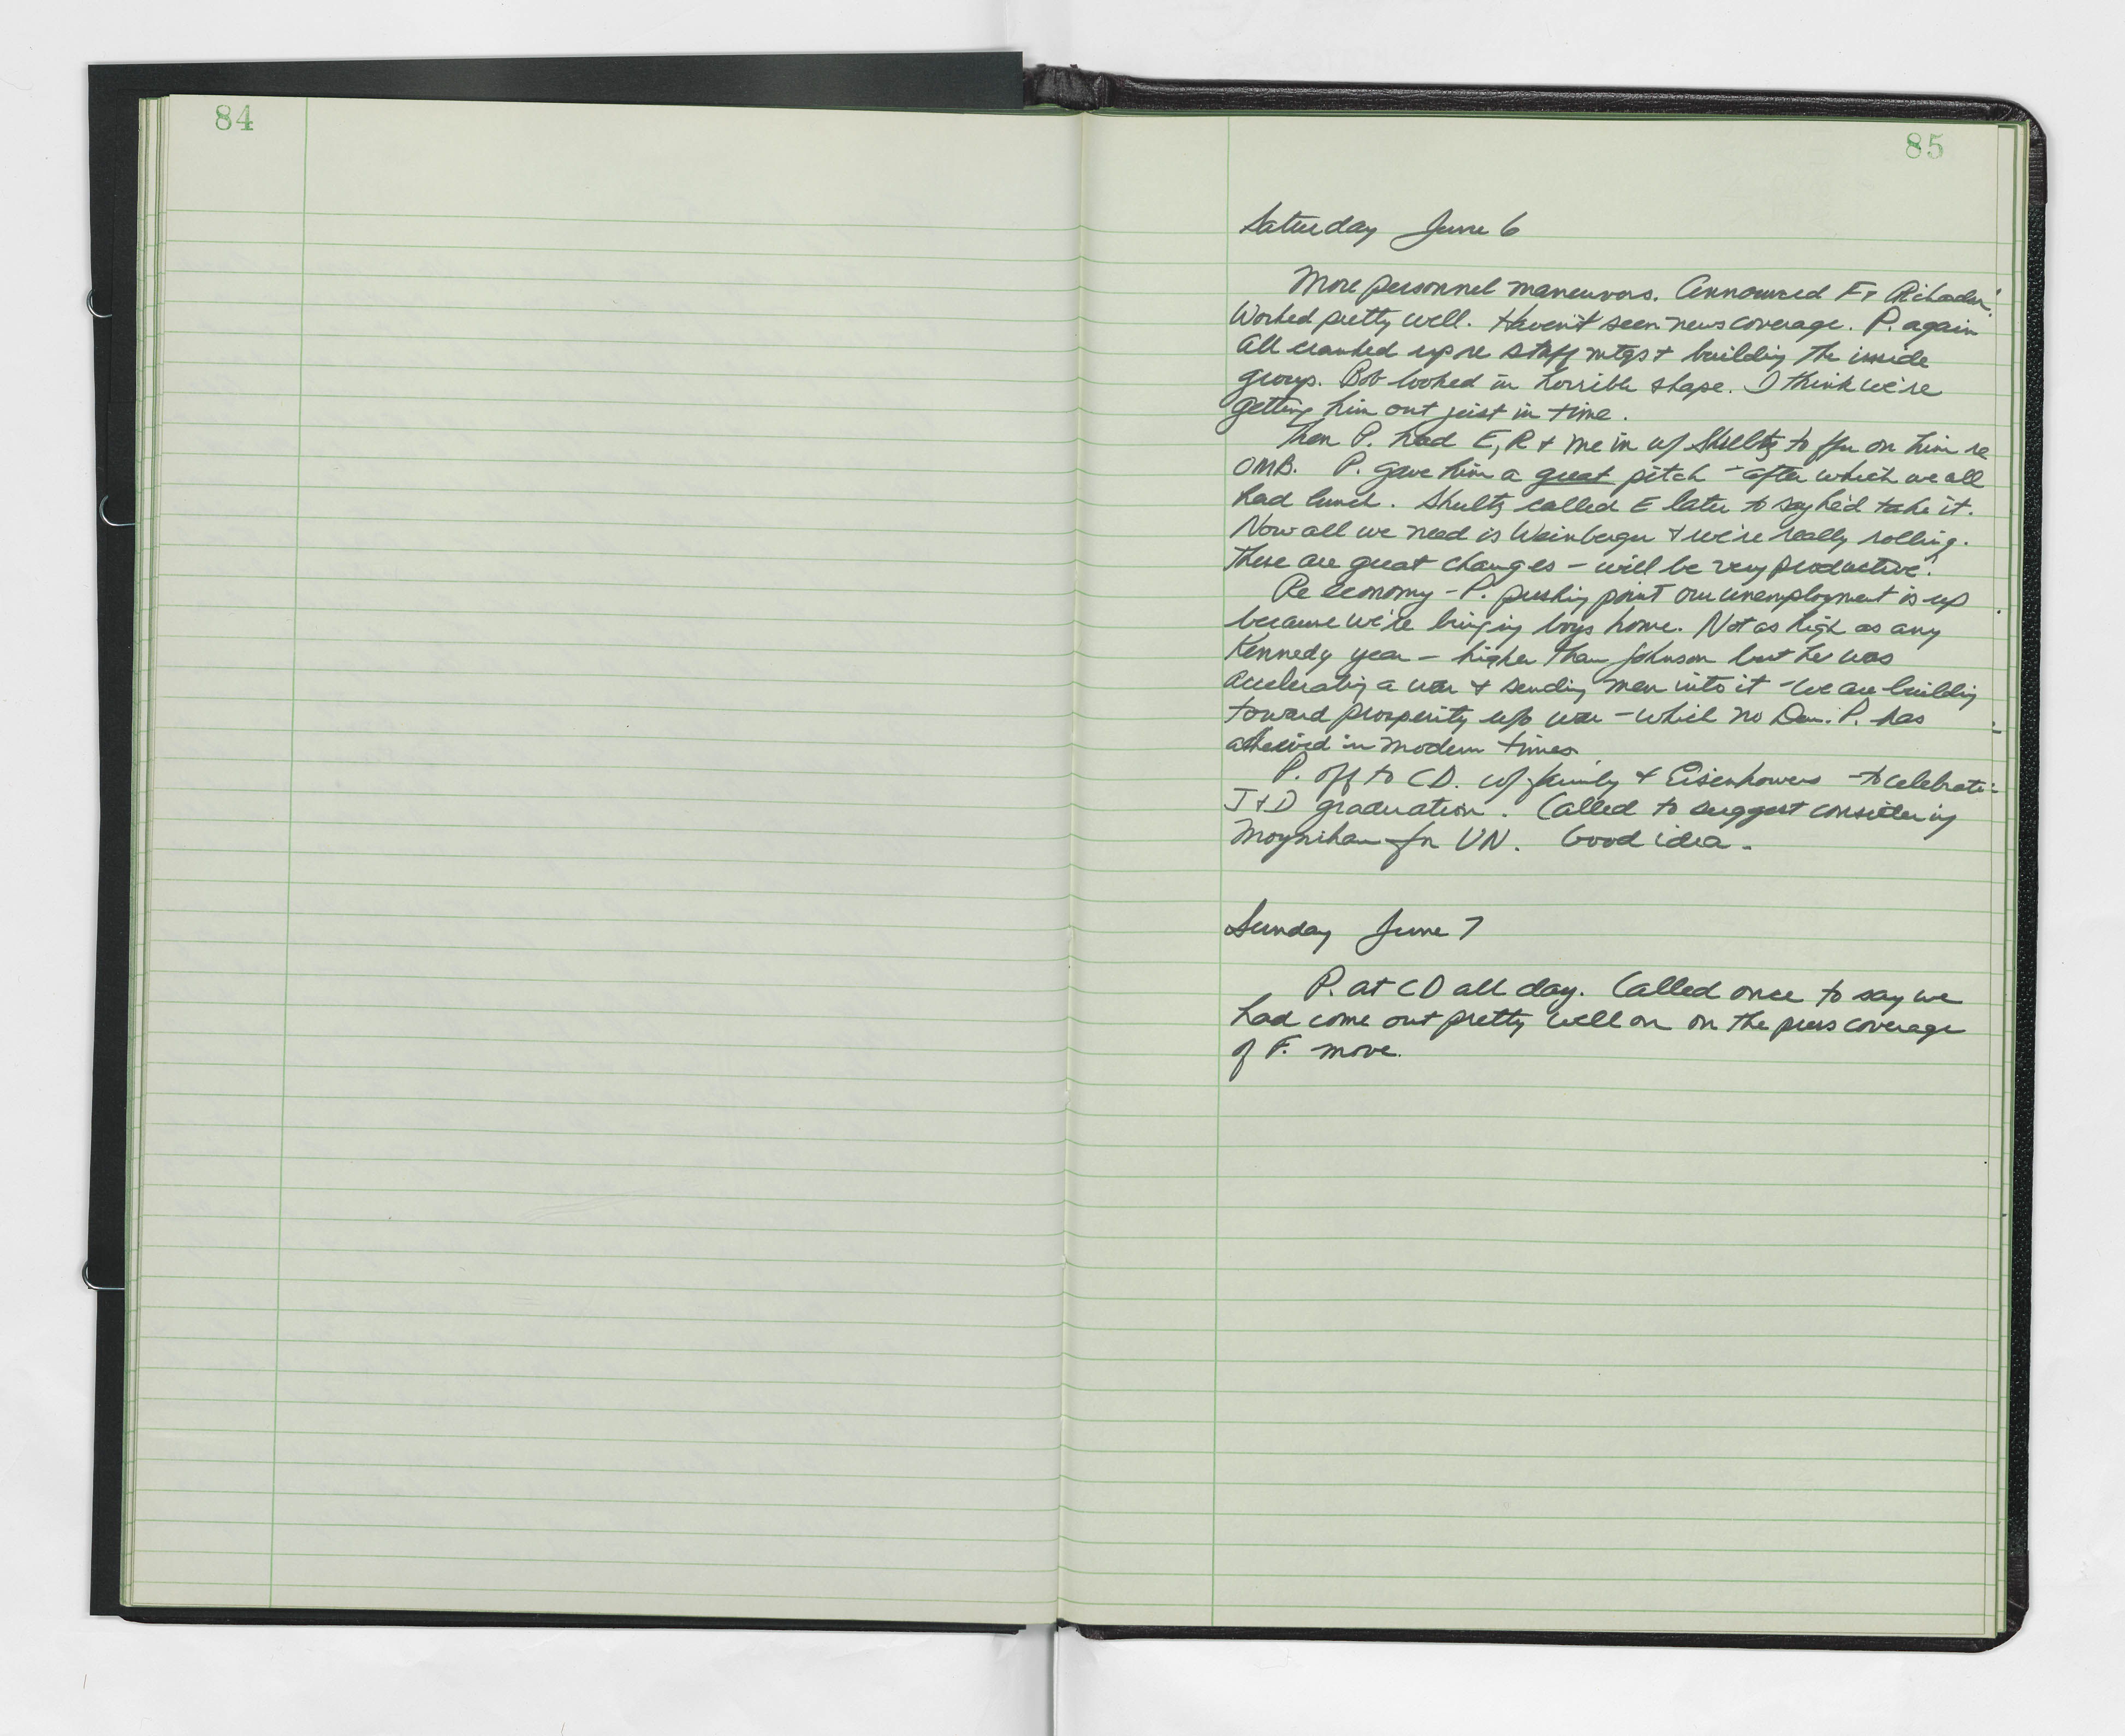 84
85
Saturday June 6
More personnel maneuvers. Announced F +
Worked pretty well. Haven't seen news coverage. P. again
all cranked up re staff mtgs + building the inside
group. Bob looked in horrible shape. I think we're
getting him out just in time.
Then P. had E, R + me in w/ Shultz to on him re
OMB. P. gave him a great pitch - after which we all
had lunch. Shultz called E later to say he'd take it.
Now all we need is Weinberger + we're really rolling.
These are great changes - will be very productive.
Re economy - P. pushing point our unemployment is up
because we're bringing boys home. Not as high as any
Kennedy year - higher than Johnson but he was
accelerating a war + sending men into it - we are building
toward prosperity w/o war - which no Dem. P. has
in modern times
P. off to CD. w/ family + Eisenhowers - to celebrate
J + D graduation. Called to suggest considering
Moynihan for UN. Good idea.
Sunday June 7
P. at CD all day. Called once to say we
had come out pretty well on on the press coverage
of F. move.